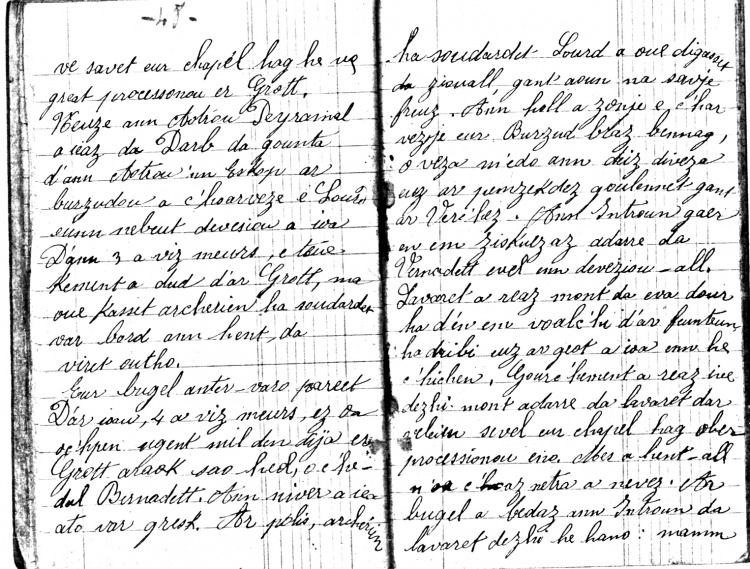 -45-
ve savet eur chapél hag he ve
great processonou er Grott.
Neuze ann Aotrou Peyramal
a ieaz da Darb da gounta
d'ann Aotrou 'nn Eskop ar
burzudou a c'hoarveze e Lourd
eunn nebeut devesiou a ioa
D'ann 3 a viz meurs, e teue
kement a dud d'ar Grott, ma
oue kasset archerien ha soudardet
var bord ann hent, da
viret outho.
Eur bugel anter-varo pareet
D'ar iaou, 4 a viz meurs, ez oa
oc'hpen ugent mil den dija er
Grott araok sao heol, o c'he-
dal Bernadett. Ann niver a iea
ato var gresk. Ar polis, archerien
ha soudardet Lourd a oue digasset
da ziouall, gant aoun na savje
freuz. Ann holl a zonje e c'har
vezje eur Burzud bras bennag,
o veza m'edo ann deiz diveza
euz ar pemzekdez goulennet gant
ar Verc'hez. Ann Introun gaer
en em ziskuezaz adarre da
Vernadett evel enn deveziou-all.
Lavaret a reaz mont da eva dour
ha d'en em voalc'hi d'ar feunteun
ha dribi euz ar geot a ioa enn he
c'hichen. Gourc'hement a reaz ive
dezhi mont adarre da lavaret dar
veleien sevel eur chapel hag ober
processionou eno. Mes a hent-all
n'oa c'hoaz netra a nevez. Ar
bugel a bedaz ann Introun da
lavaret dezhi he hano: mamm